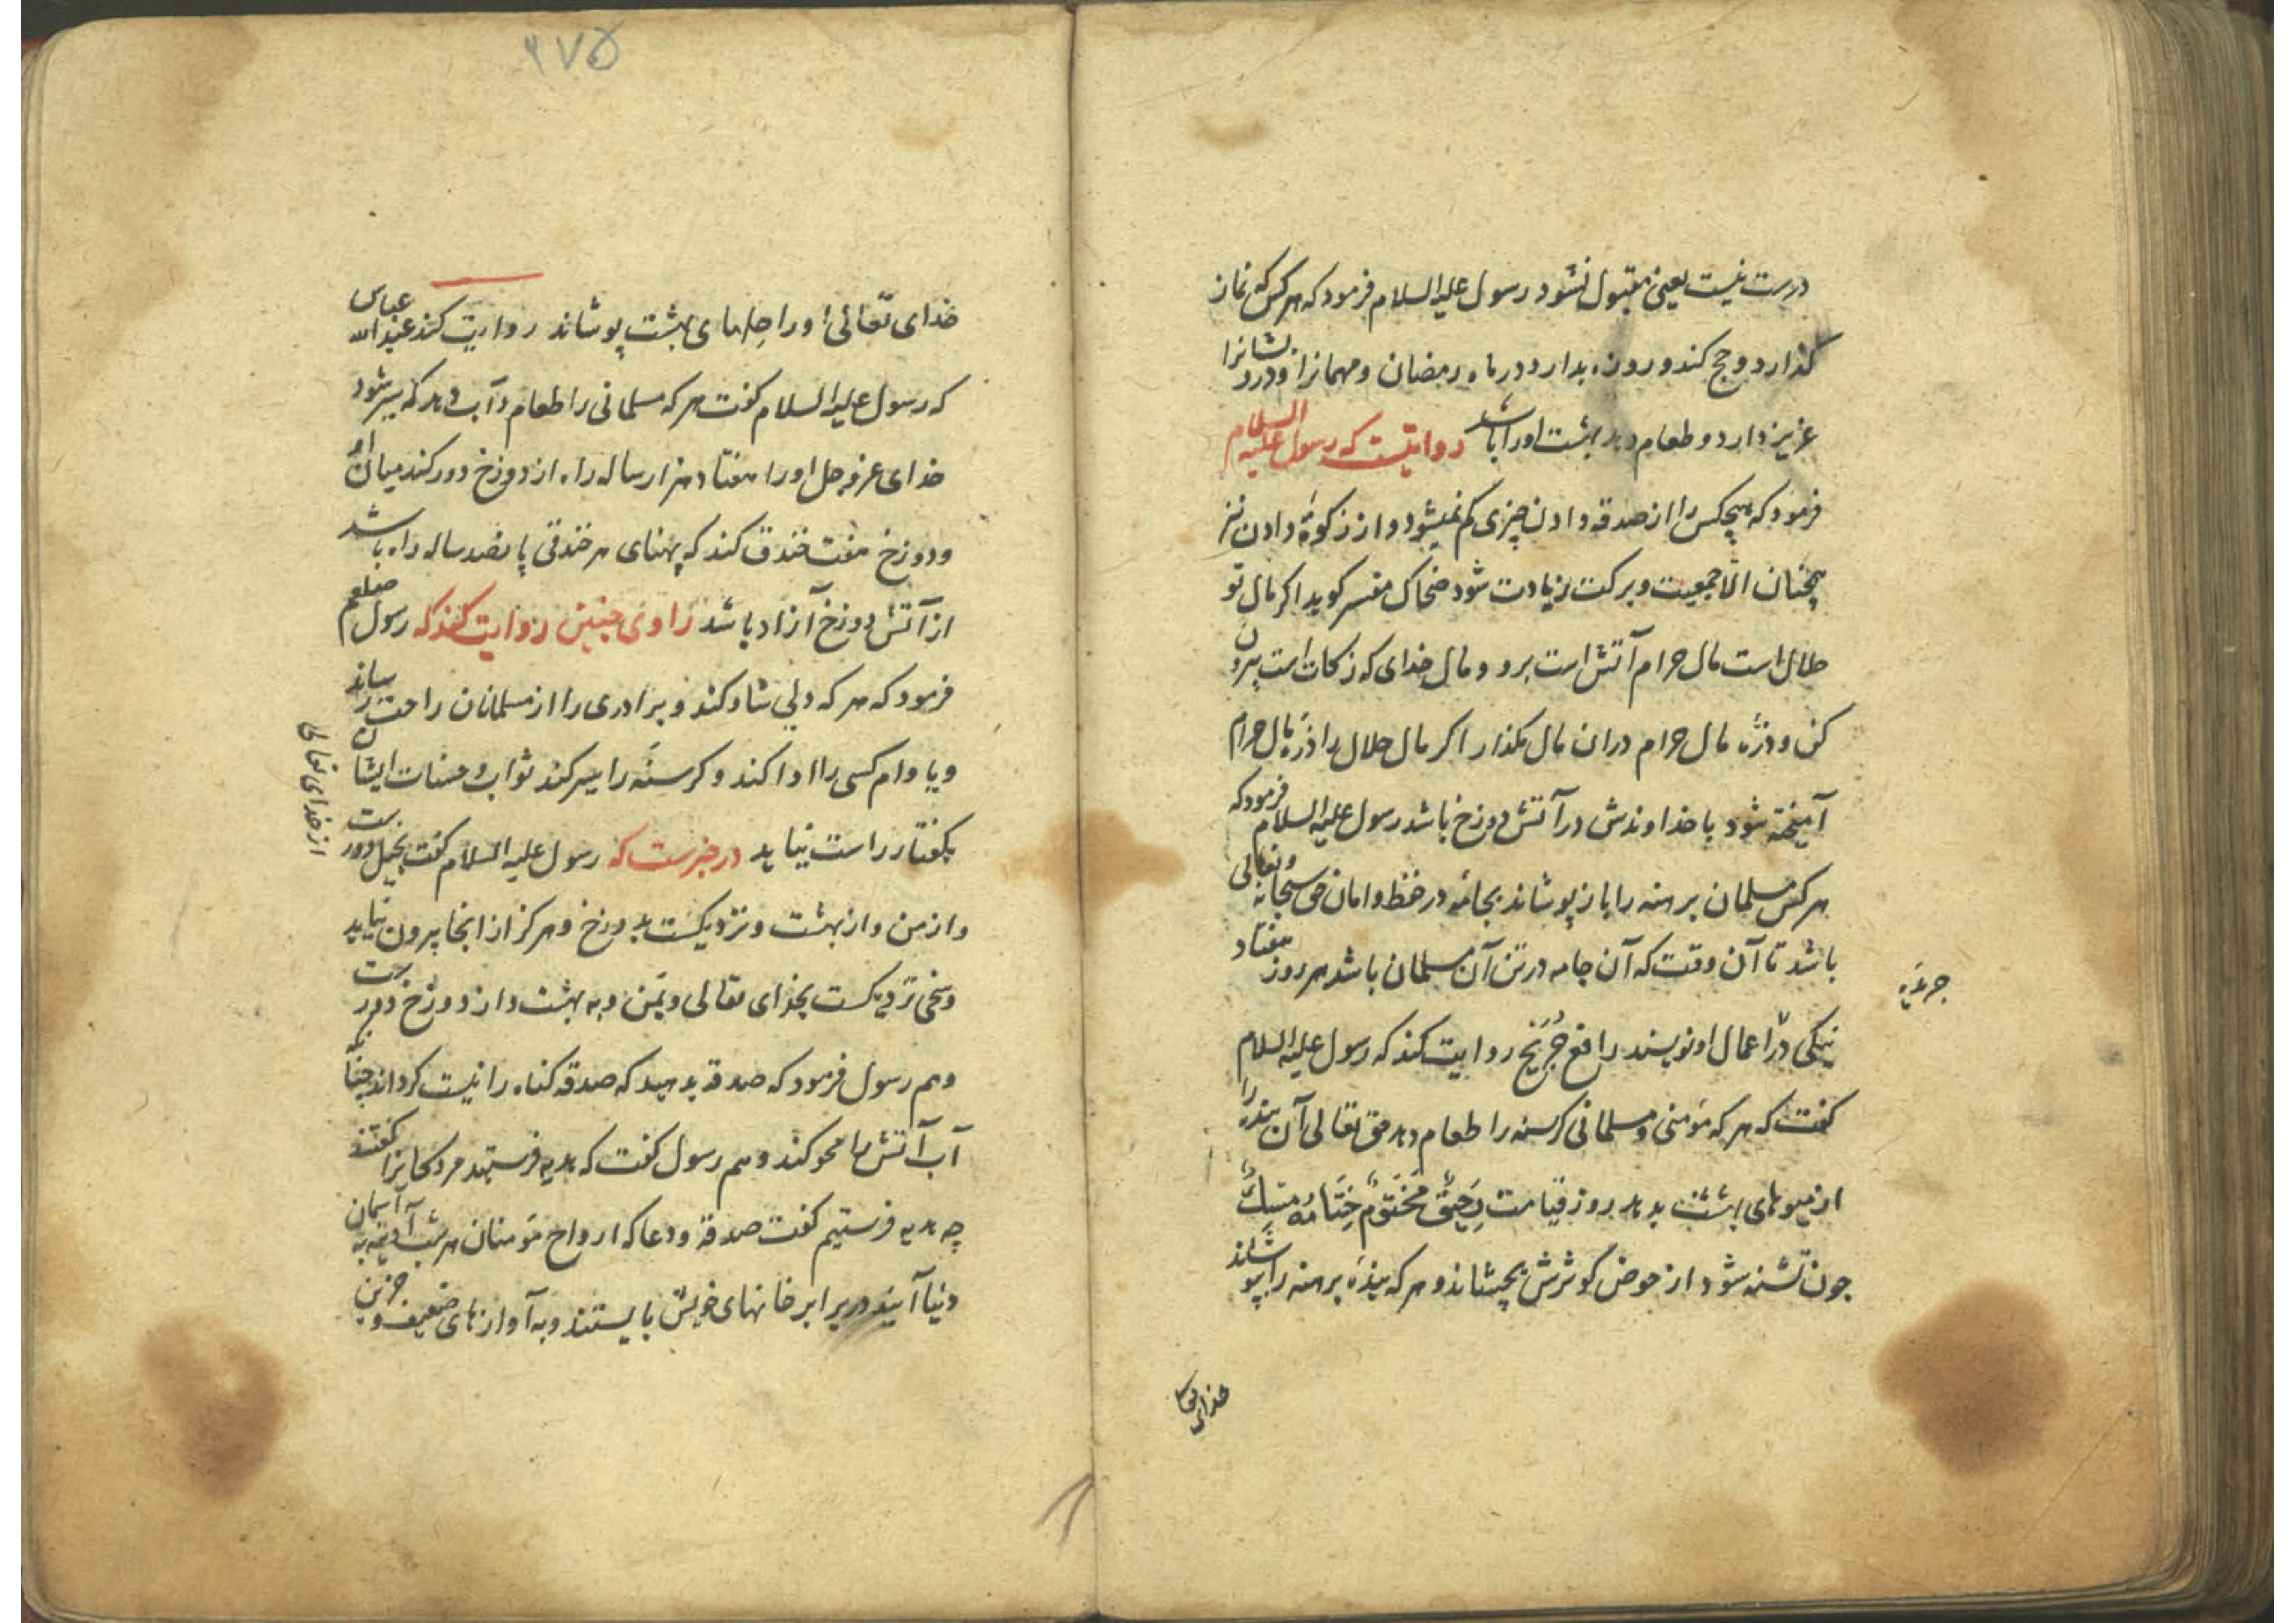 درست نیست یعنی مقبول نشود رسول علیه السلام فرمود که هر کس که نماز
گذارد و حج کند و روزه بدارد در ماه رمضان و مهمانرا و درویشانرا
عزیز دارد و طعام دهد بهشت اورا باشد روایتست که رسول علیه السلام
فرمود که هیچکس را از صدقه دادن چیزی کم نمیشود و از زکوة دادن نیز
همچنان الا جمعیت و برکت زیادت شود ضحاک مفسر کوید اکر مال تو
حلال است مال حرام آتش است برو و مال خدای که زکات است بیرون
کن و ذرّه مال حرام دران مال مکذار اکر مال حلال را ذرّه مال حرام
آمیخته شود با خداوندش در آتش دوزخ باشد رسول علیه السلام فرمود که
هر کس مسلمان برهنه را باز پوشاند بجامه در حفظ و امان حق سبحانه و تعالی
باشد تا آن وقت که آن جامه در تن آن مسلمان باشد هر روز هفتاد
نیکی در اعمال او نویسند رافع جریج روایت کند که رسول علیه السلام
کفت که هر که مؤمنی و مسلمانی کرسنه را طعام دهد حق تعالی آن بنده را
از میوهای بهشت بدهد روز قیامت رَحیقٌ مَختومٌ خِتامُهُ مِسکٌ
چون تشنه شود از حوض کوثرش بچشاند و هر که بنده برهنه را بپوشاند
خدای تعا
۲۷۵
خدای تعالی اورا حلهای بهشت پوشاند روایت کند عبد الله عباس
که رسول علیه السلام کفت هر که مسلمانی را طعام و آب دهد که سیر شود
خدای عز و جل اورا هفتاد هزار ساله راه از دوزخ دور کند میان او
و دوزخ هفت خندق کند که پهنای هر خندقی پانصد ساله راه باشد
از آتش دوزخ آزاد باشد راوی چنین روایت کند که رسول صلعم
فرمود که هر که دلی شاد کند و برادری را از مسلمانان راحت رساند
و یا وام کسی را ادا کند و کرسنه را سیر کند ثواب و حسنات ایشان
از خدای تعالی
بکفتار راست نیاید در خبرست که رسول علیه السلام کفت بخیل دورست
و از من و از بهشت و نزدیکست بدوزخ و هرکز از انجا بیرون نیاید
و سخی نزدیکست بخدای تعالی و بمن و به بهشت و از دوزخ دورست
و هم رسول فرمود که صدقه بدهید که صدقه کناه را نیست کرداند چنانکه
آب آتش را محو کند و هم رسول کفت که هدیه فرستید مردکانرا کفتند
چه هدیه فرستیم کفت صدقه و دعا که ارواح مؤمنان هر شب آدینه به آسمان
دنیا آیند در برابر خانهای خویش بایستند و به آوازهای ضعیف و حزین